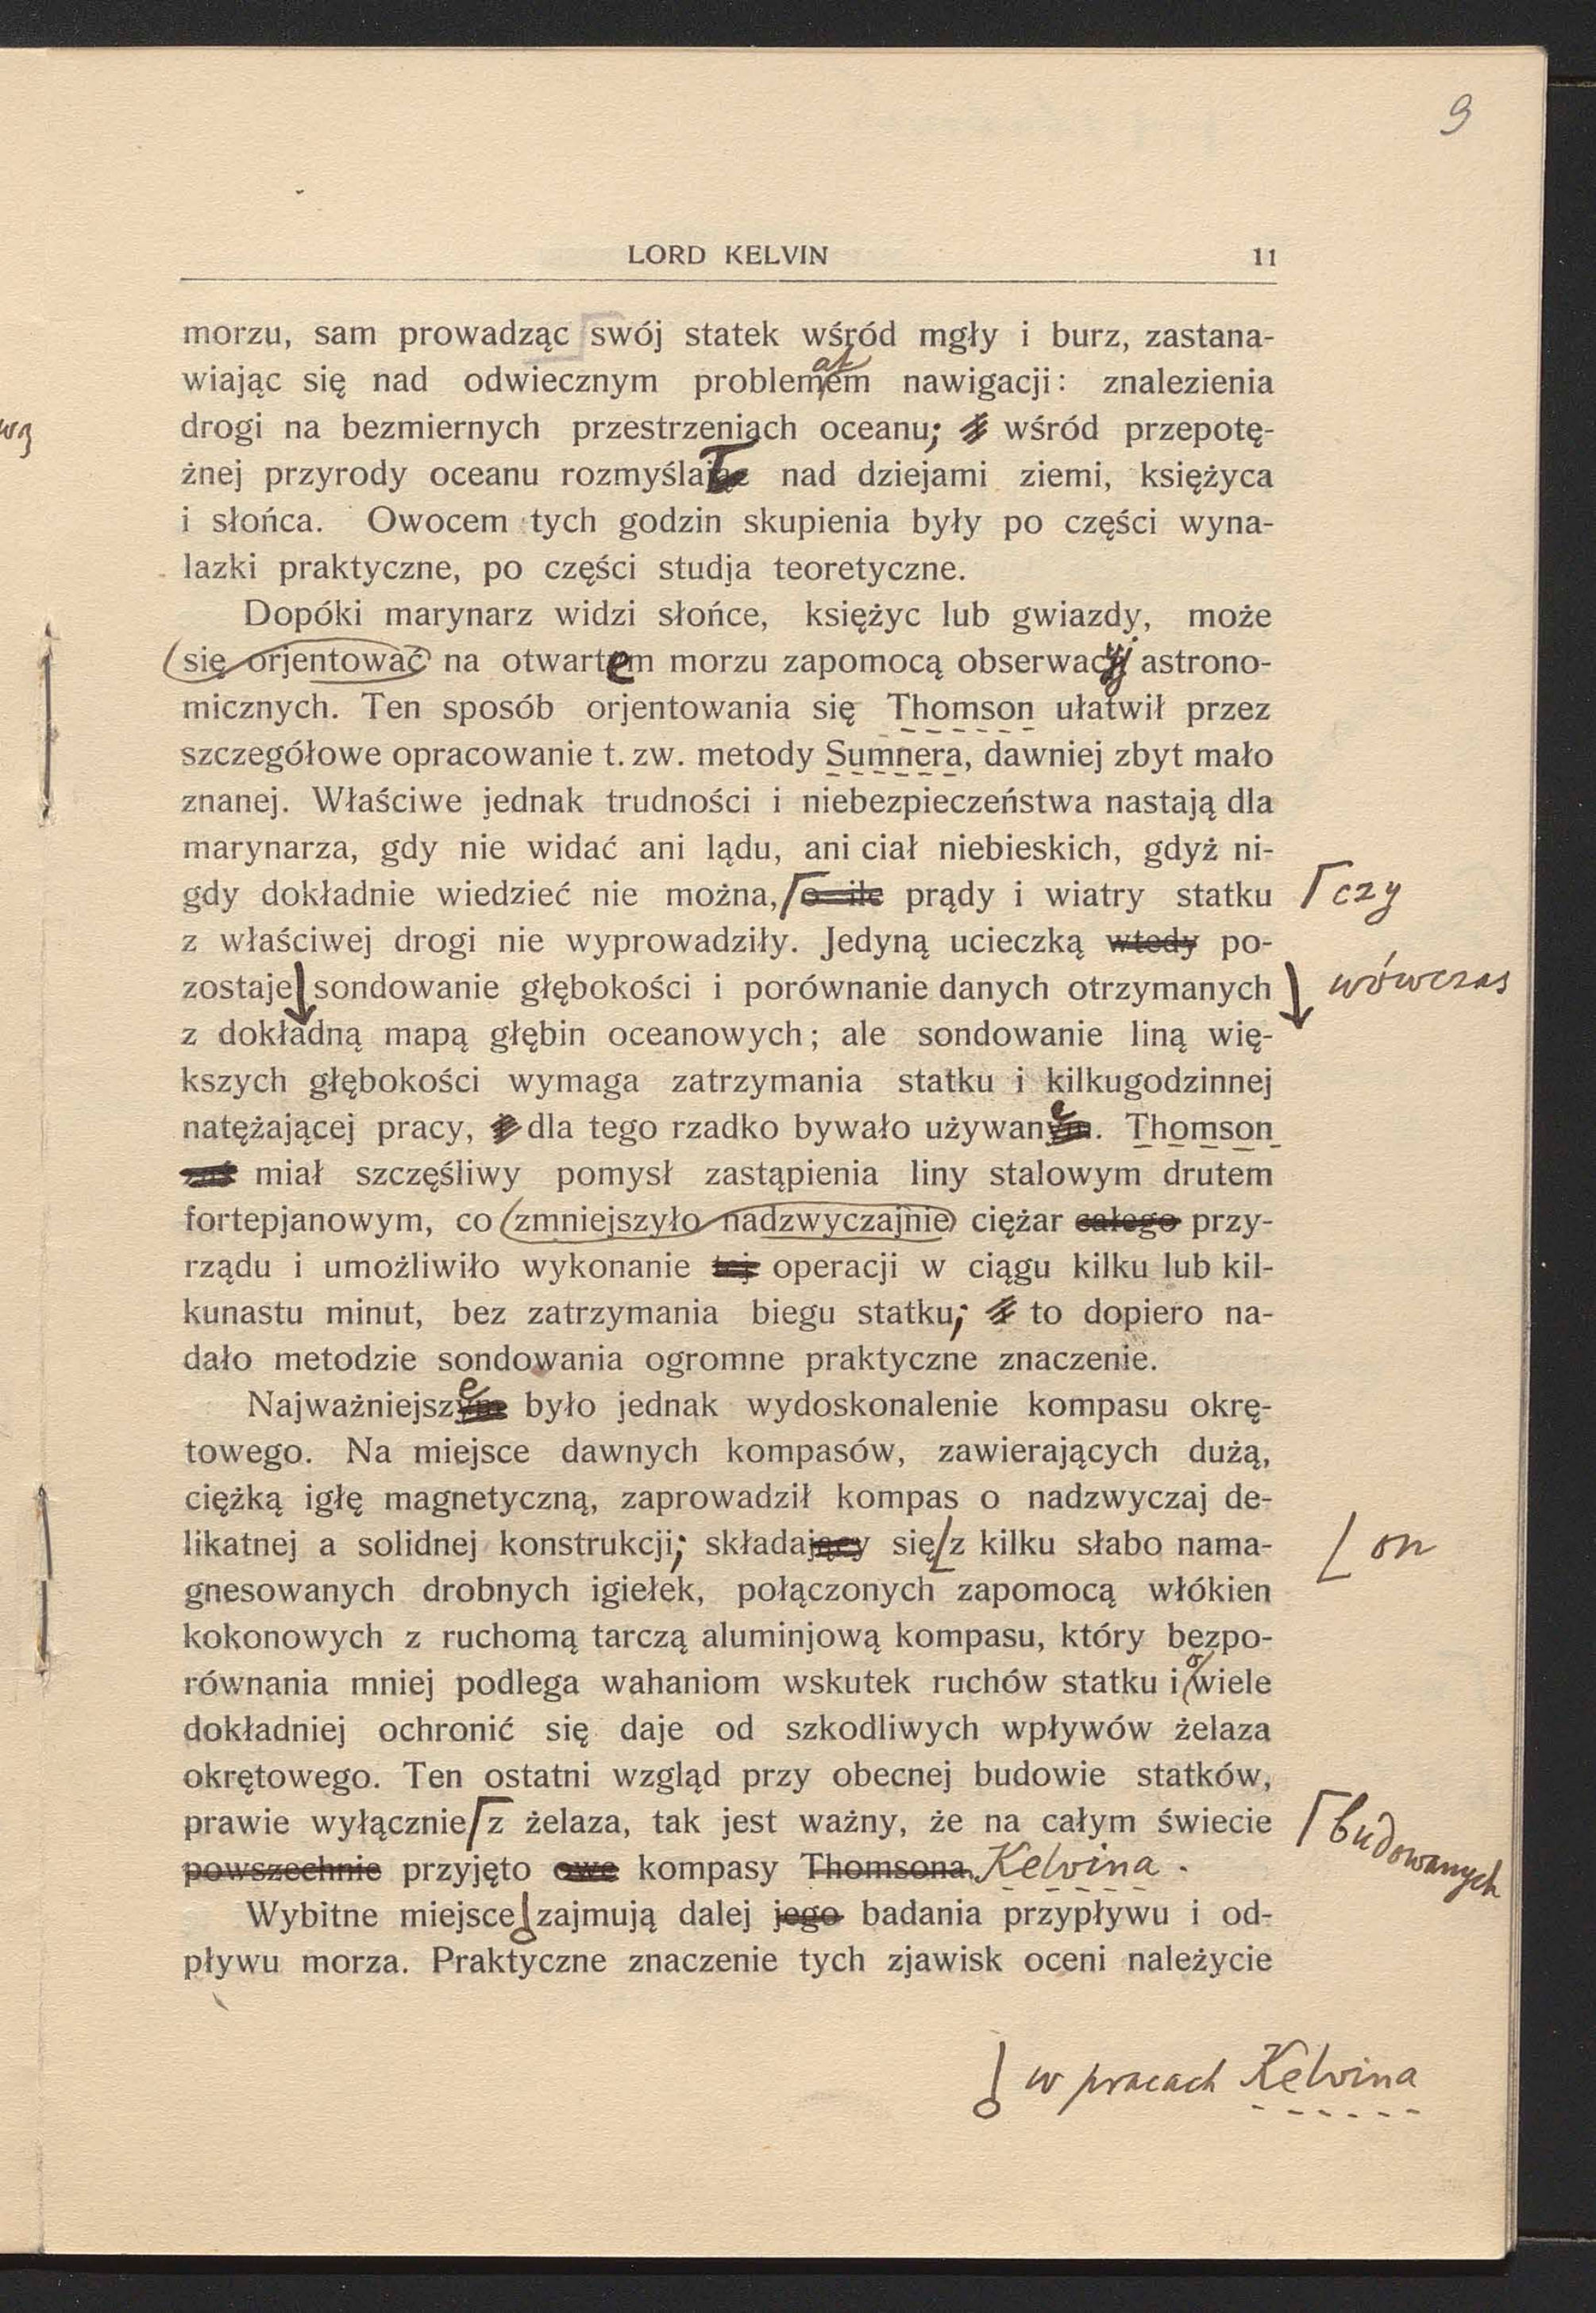 9
LORD KELVIN 11
morzu, sam prowadząc swój statek wśród mgły i burz, zastana-
wiając się nad odwiecznym problemem nawigacji: znalezienia
drogi na bezmiernych przestrzeniach oceanu; wśród przepotę-
żnej przyrody oceanu rozmyślał nad dziejami ziemi, księżyca
i słońca. Owocem tych godzin skupienia były po części wyna-
lazki praktyczne, po części studja teoretyczne.
Dopóki marynarz widzi słońce, księżyc lub gwiazdy, może
się orjentować na otwartem morzu zapomocą obserwacyj astrono-
micznych. Ten sposób orjentowania się Thomson ułatwił przez
szczegółowe opracowanie t. zw. metody Sumnera, dawniej zbyt mało
znanej. Właściwe jednak trudności i niebezpieczeństwa nastają dla
marynarza, gdy nie widać ani lądu, ani ciał niebieskich, gdyż ni-
gdy dokładnie wiedzieć nie można, o ile prądy i wiatry statku czy
z właściwej drogi nie wyprowadziły. Jedyną ucieczką wtedy po-
zostaje sondowanie głębokości i porównanie danych otrzymanych wówczas
z dokładną mapą głębin oceanowych; ale sondowanie liną wię-
kszych głębokości wymaga zatrzymania statku i kilkugodzinnej
natężającej pracy, dla tego rzadko bywało używane. Thomson
zaś miał szczęśliwy pomysł zastąpienia liny stalowym drutem
fortepjanowym, co zmniejszyło nadzwyczajnie ciężar całego przy-
rządu i umożliwiło wykonanie tej operacji w ciągu kilku lub kil-
kunastu minut, bez zatrzymania biegu statku; to dopiero na-
dało metodzie sondowania ogromne praktyczne znaczenie.
Najważniejsze było jednak wydoskonalenie kompasu okrę-
towego. Na miejsce dawnych kompasów, zawierających dużą,
ciężką igłę magnetyczną, zaprowadził kompas o nadzwyczaj de-
likatnej a solidnej konstrukcji; składający się z kilku słabo nama- on
gnesowanych drobnych igiełek, połączonych zapomocą włókien
kokonowych z ruchomą tarczą aluminjową kompasu, który bezpo-
równania mniej podlega wahaniom wskutek ruchów statku i o wiele
dokładniej ochronić się daje od szkodliwych wpływów żelaza
okrętowego. Ten ostatni wzgląd przy obecnej budowie statków,
prawie wyłącznie z żelaza, tak jest ważny, że na całym świecie budowanych
powszechnie przyjęto owe kompasy Thomsona. Kelvina.
Wybitne miejsce zajmują dalej jego badania przypływu i od-
pływu morza. Praktyczne znaczenie tych zjawisk oceni należycie
w pracach Kelvina